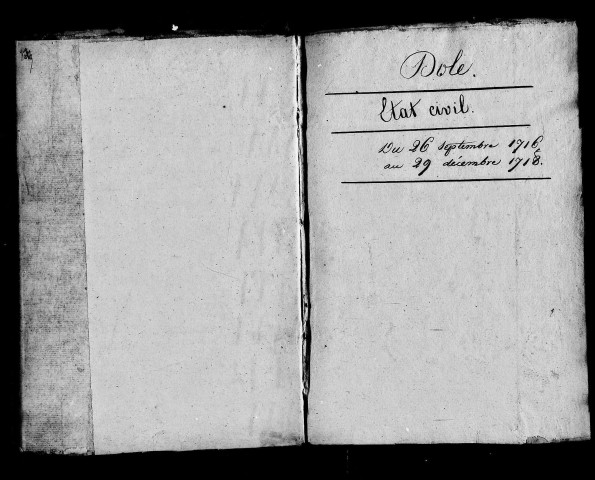 Dole.
Etat civil.
Du 26 septembre 1716
au 29 décembre 1718.